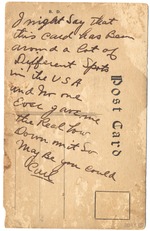 I might Say that
this card has Been
around a lot of
Different Spots
in the USA
and No one
Ever gave me
the Real Low
Down on it So
May Be you could
Carl
Post Card